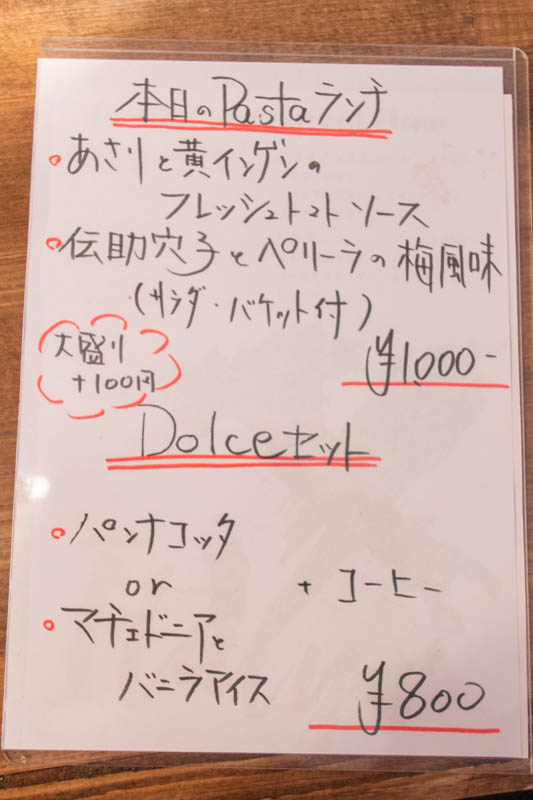 本日のPastaランチ
あさりと黄インゲンの
フレッシュトマトソース
伝助穴子とペリーラの梅風味
(サラダ・バケット付)
大盛り
+100円
¥1,000-
Dolceセット
パンナコッタ
or
+ コーヒー
マチェドニアと
バニラアイス
¥800